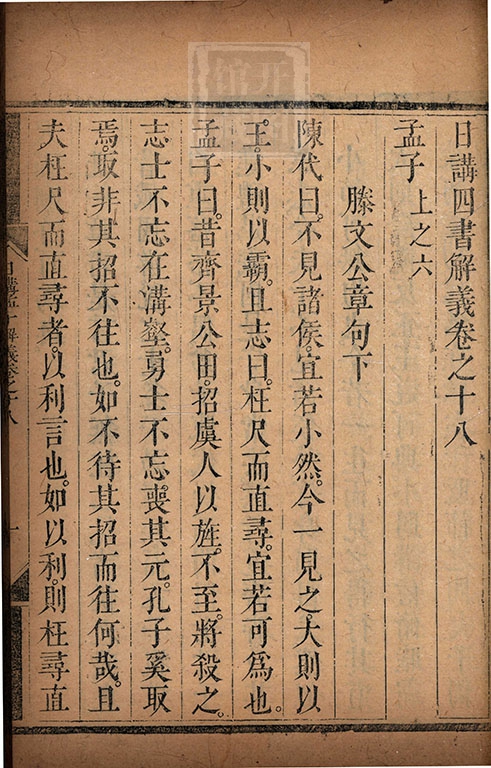 日講四書解義卷之十八
孟子 上之六
滕文公章句下
陳代曰。不見諸侯。宜若小然。今一見之。大則以
王。小則以霸。且志曰。枉尺而直尋。宜若可爲也。
孟子曰。昔齊景公田。招虞人以旌。不至。將殺之。
志士不忘在溝壑。勇士不忘喪其元。孔子奚取
焉。取非其招不往也。如不待其招而往何哉。且
夫枉尺而直尋者。以利言也。如以利。則枉尋直